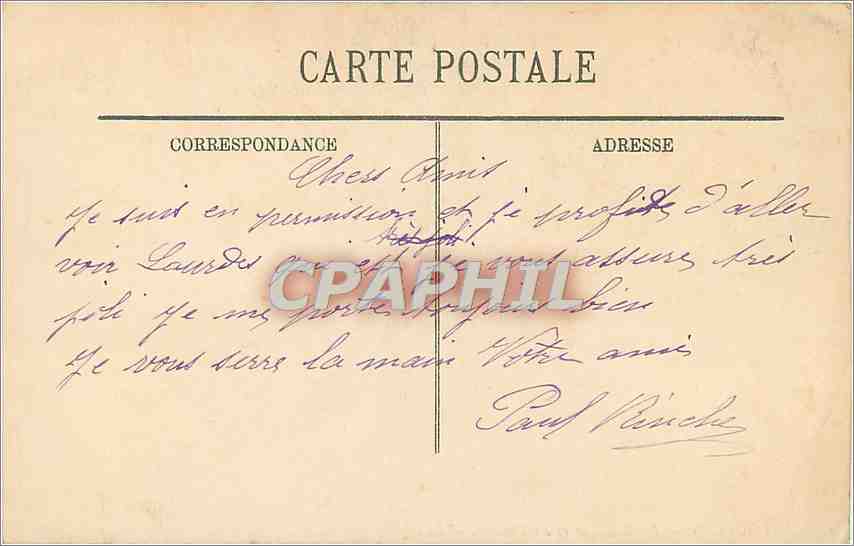 CARTE POSTALE
CORRESPONDANCE
ADRESSE
Chers Amis
Je suis en permission et je profite d'aller
très joli
voir Lourdes qui est je vous assure très
joli Je me porte toujours bien
Je vous serre la main Votre ami
Paul
CPAPHIL